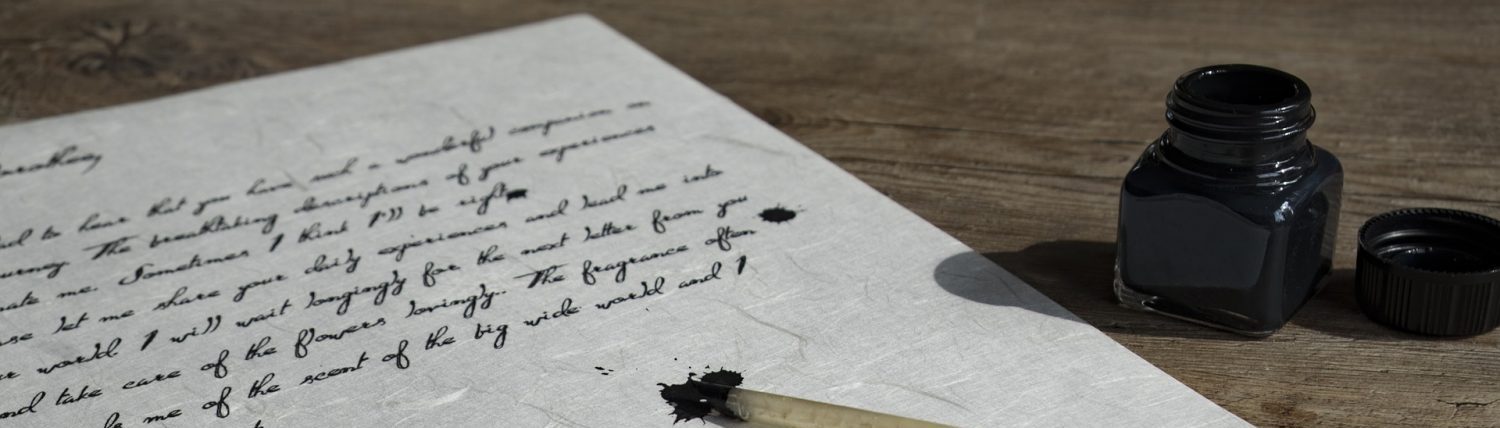 to hear that you have such a wonderful companion on
The breathtaking descriptions of your experiences
me. Sometimes I think I'll be right
let me share your daily experiences and lead me into
world. I will wait longingly for the next letter from you
and take care of the flowers lovingly. The fragrance often
me of the scent of the big wide world and I